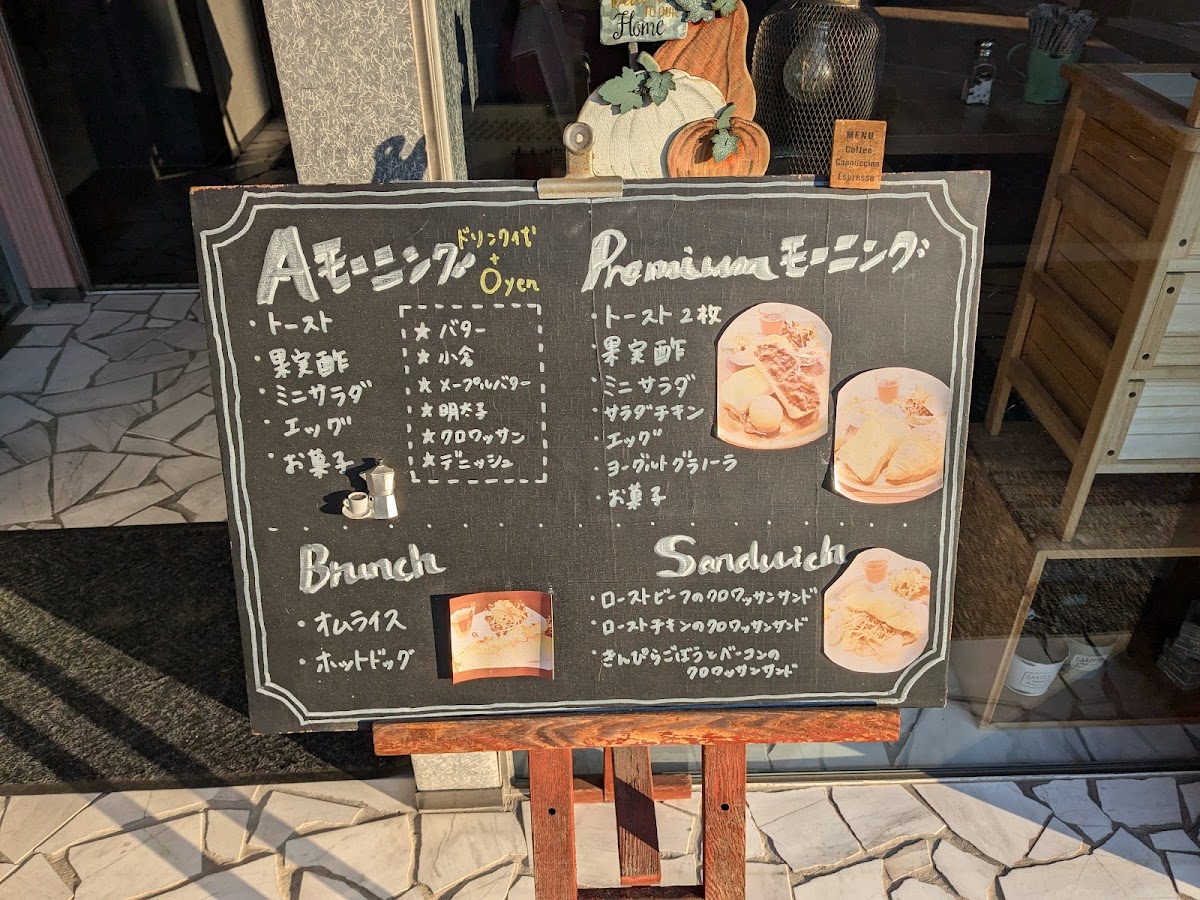 Home
MENU
Coffee
Cappuccino
Espresso
Aモーニング
ドリンク代
+
0yen
・トースト
・果実酢
・ミニサラダ
・エッグ
・お菓子
★バター
★小倉
★メープルバター
★明太子
★クロワッサン
★デニッシュ
Premiumモーニング
・トースト2枚
・果実酢
・ミニサラダ
・サラダチキン
・エッグ
・ヨーグルトグラノーラ
・お菓子
Brunch
・オムライス
・ホットドッグ
Sandwich
・ローストビーフのクロワッサンサンド
・ローストチキンのクロワッサンサンド
・きんぴらごぼうとベーコンの
クロワッサンサンド